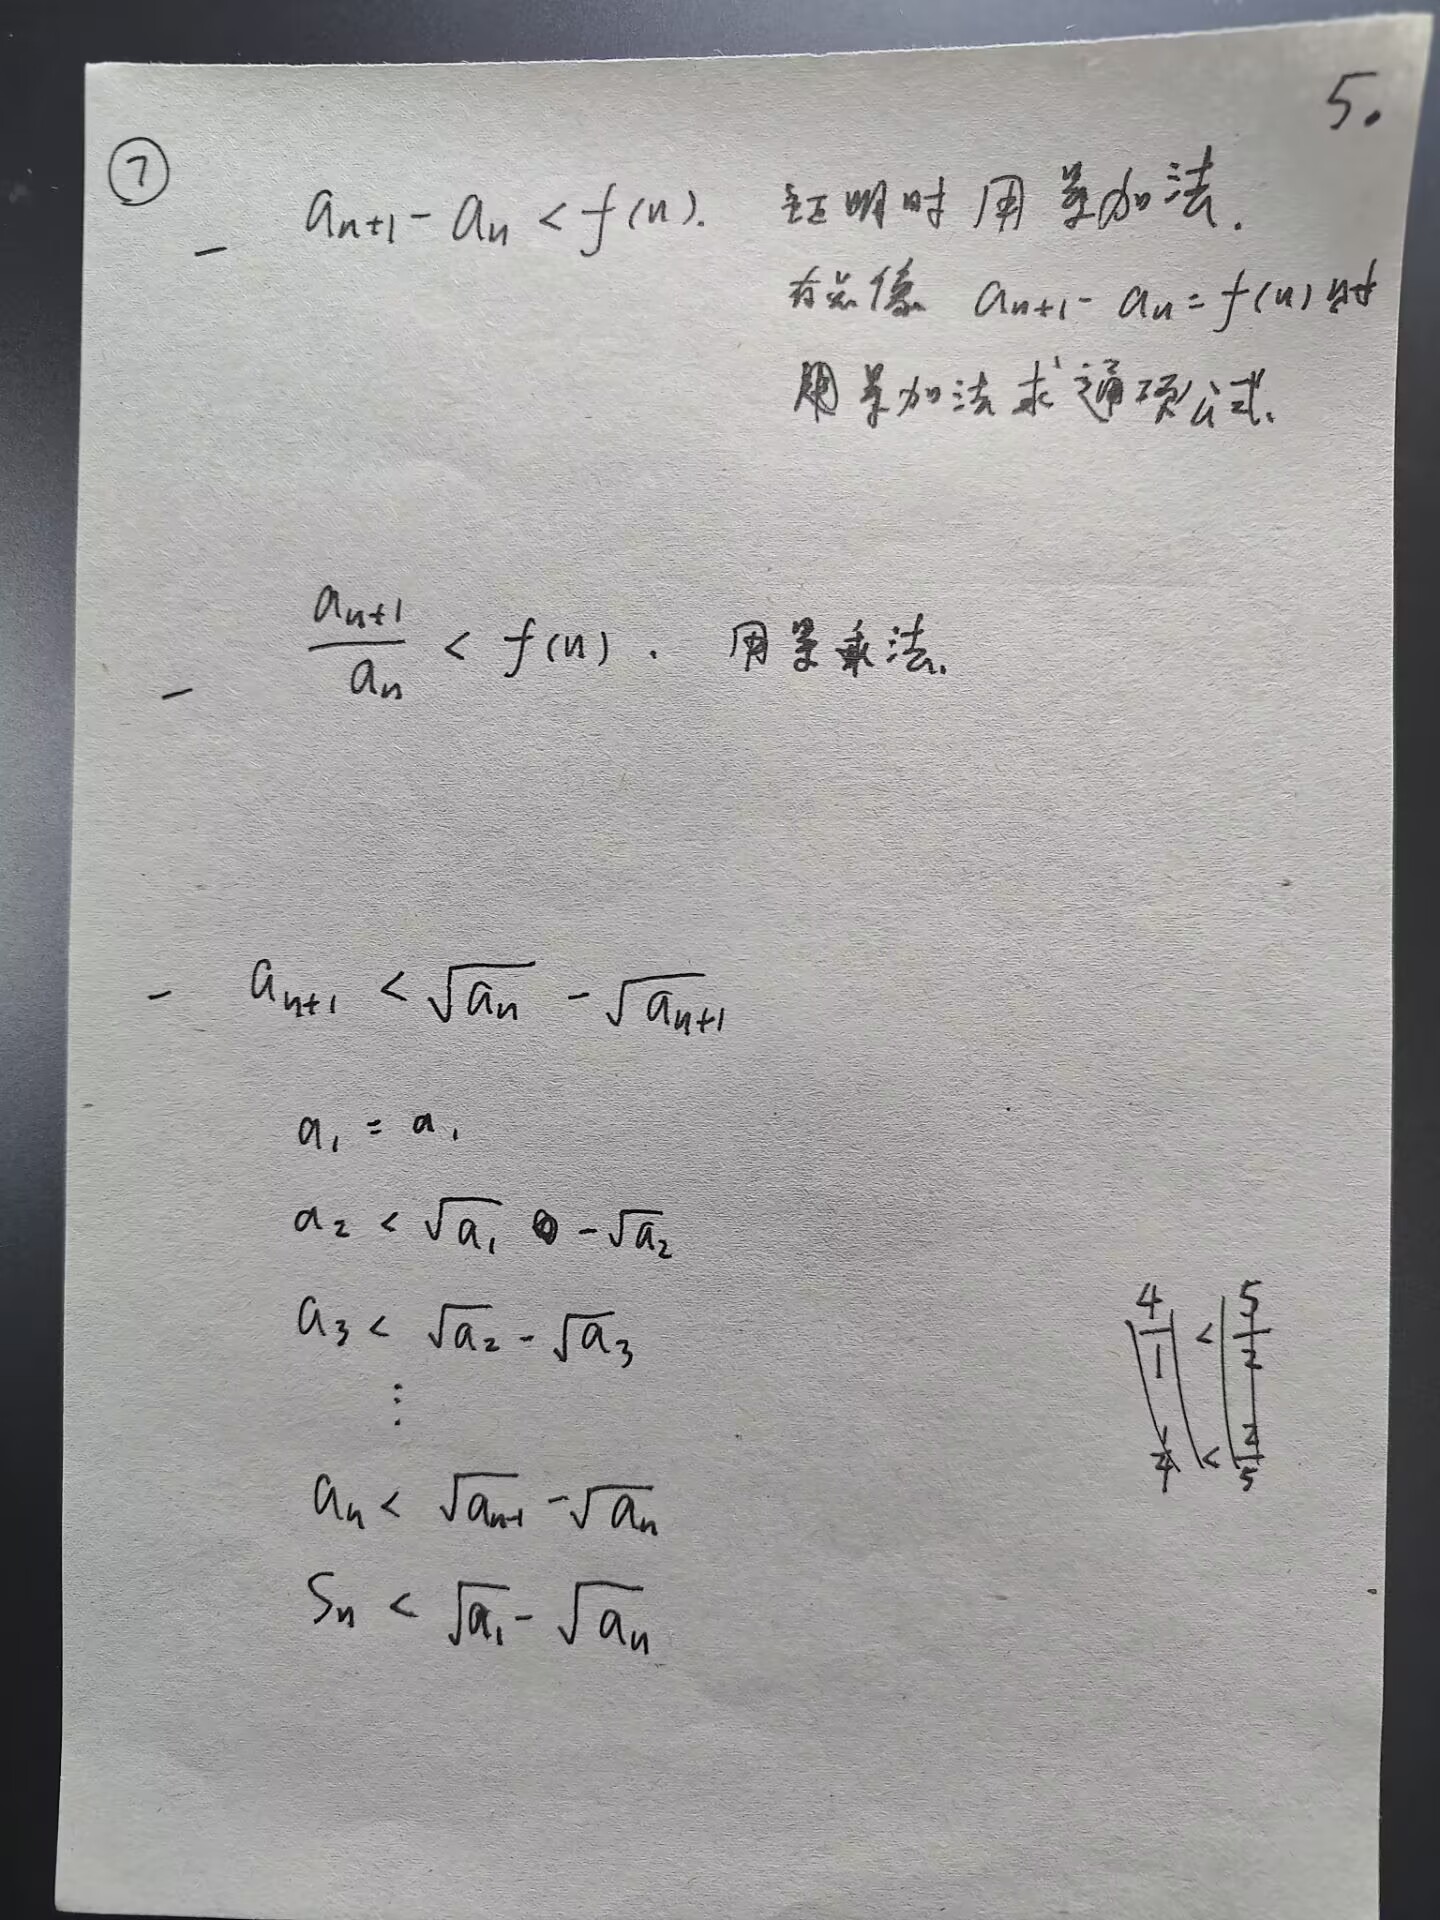 5.
⑦
— aₙ₊₁ - aₙ < f(n). 证明时用累加法.
有点像 aₙ₊₁ - aₙ = f(n) 时
用累加法求通项公式.
— aₙ₊₁/aₙ < f(n). 用累乘法.
— aₙ₊₁ < √aₙ - √aₙ₊₁
a₁ = a₁
a₂ < √a₁ - √a₂
a₃ < √a₂ - √a₃
4/1 < 5/2
⋮
aₙ < √aₙ₋₁ - √aₙ
< 2/5
Sₙ < √a₁ - √aₙ